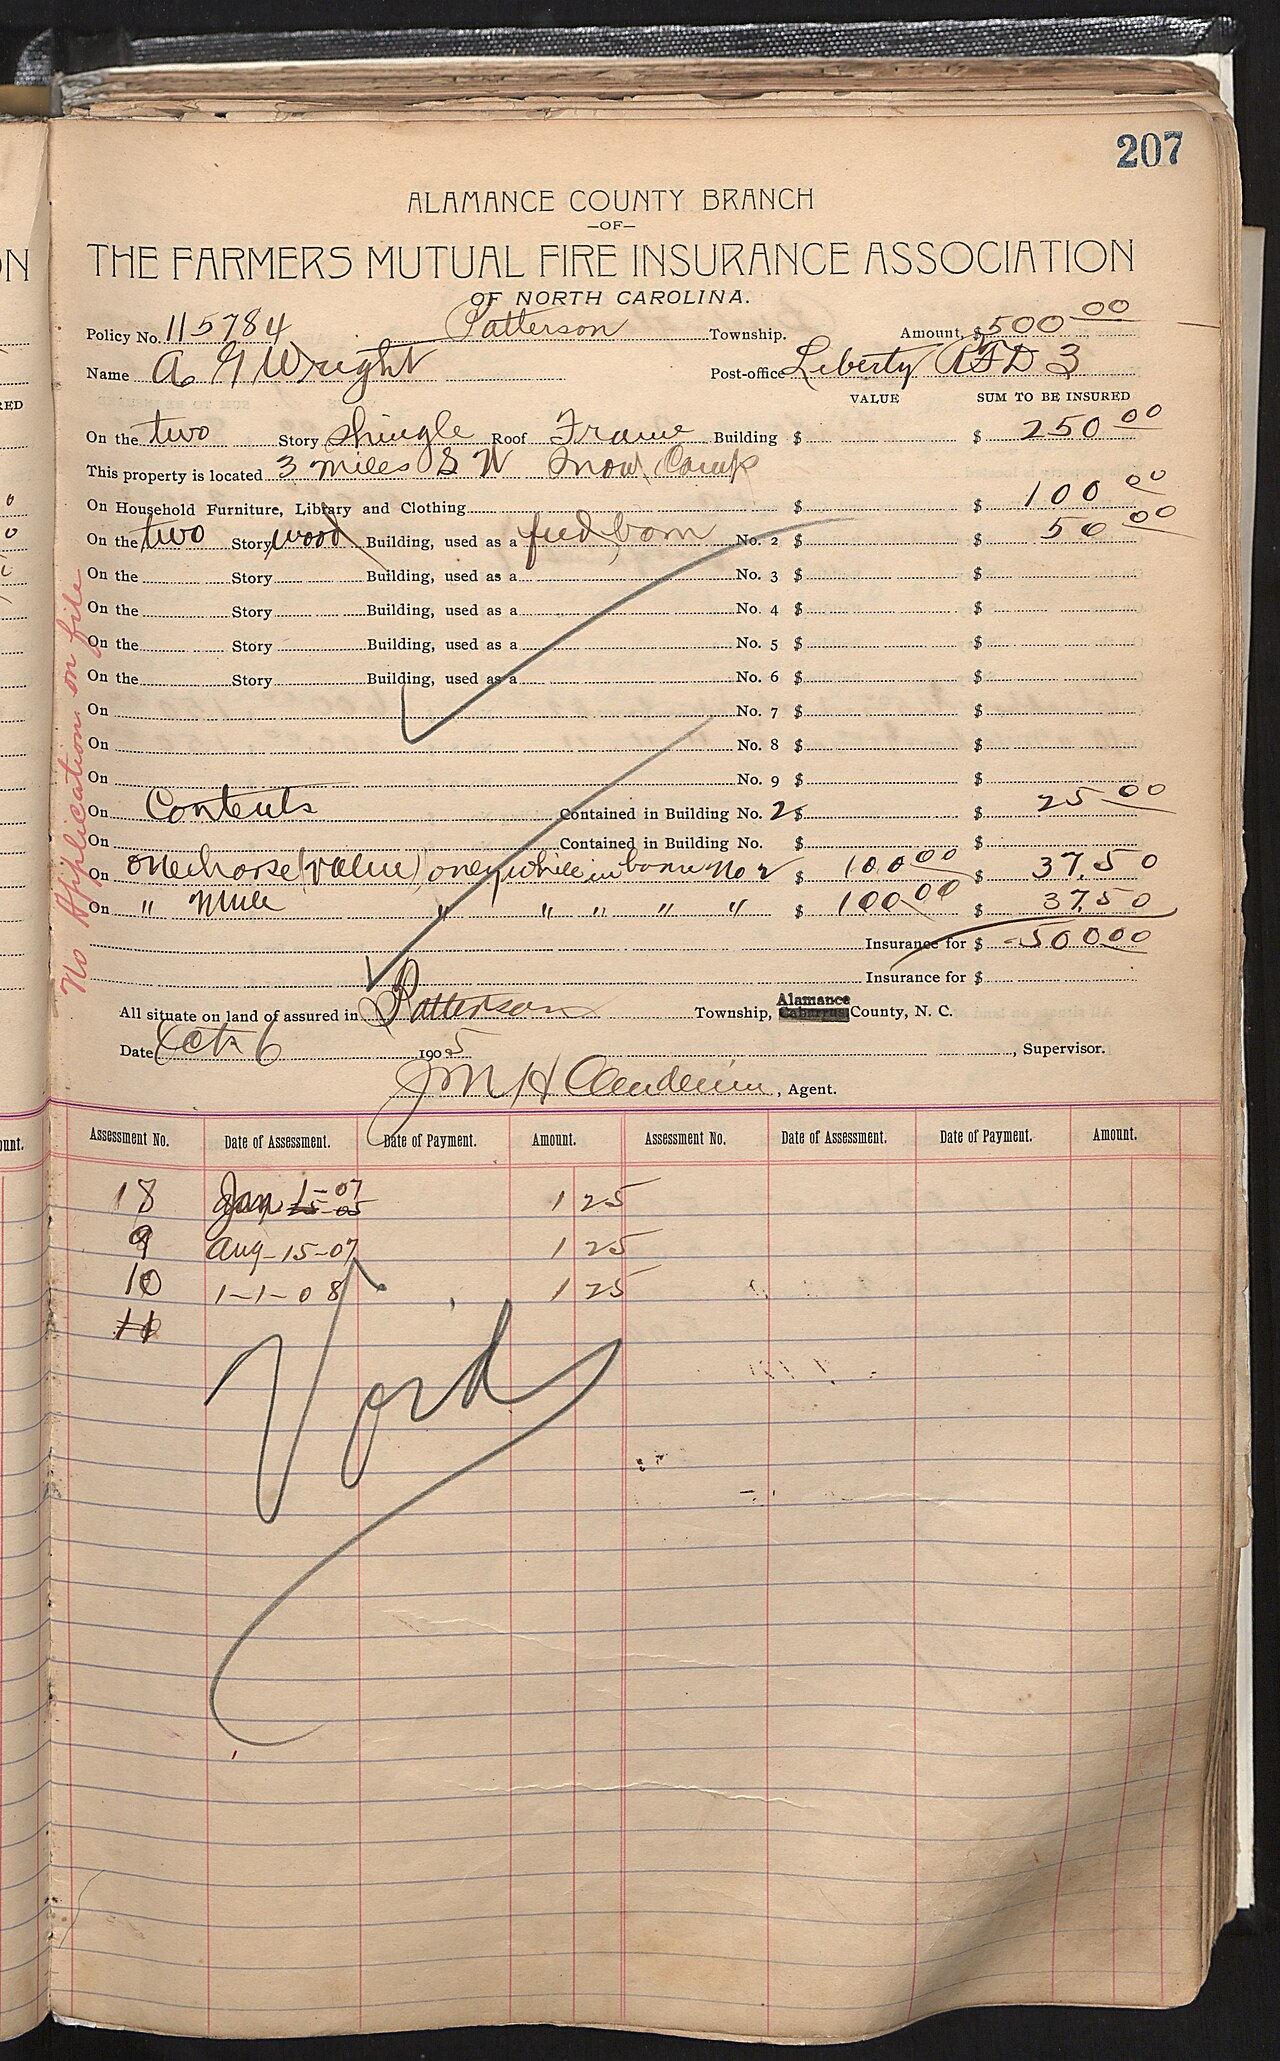 207
ALAMANCE COUNTY BRANCH
—OF—
THE FARMERS MUTUAL FIRE INSURANCE ASSOCIATION
OF NORTH CAROLINA.
Policy No. 115784 Patterson Township. Amount, $500 00
Name A G Wright Post-office Liberty RFD 3
VALUE SUM TO BE INSURED
On the two Story Shingle Roof Frame Building $ $ 250 00
This property is located 3 miles S W Snow Camp
On Household Furniture, Library and Clothing $ $ 100 00
On the two Story wood Building, used as a feed barn No. 2 $ $ 50 00
On the Story Building, used as a No. 3 $ $
On the Story Building, used as a No. 4 $ $
On the Story Building, used as a No. 5 $ $
On the Story Building, used as a No. 6 $ $
On No. 7 $ $
On No. 8 $ $
On No. 9 $ $
On Contents Contained in Building No. 2 $ $ 25 00
On Contained in Building No. $ $
On one horse (value) only while in barn No 2 $ 100 00 $ 37.50
On " Mule " " " " " $ 100 00 $ 37.50
Insurance for $ 500 00
Insurance for $
No Application on file
All situate on land of assured in Patterson Township, Alamance Cabarrus County, N. C.
Date Oct 6 1905 , Supervisor.
J M H Clendenin, Agent.
Assessment No. Date of Assessment. Date of Payment. Amount. Assessment No. Date of Assessment. Date of Payment. Amount.
18 Jan 1-07 1 25
9 Aug-15-07 1 25
10 1-1-08 1 25
11
Void